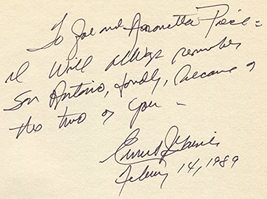 To Joe and Aaronetta Pierce =
I will always remember
San Antonio, fondly, because of
the two of you —
Ernest J. Gaines
February 14, 1989